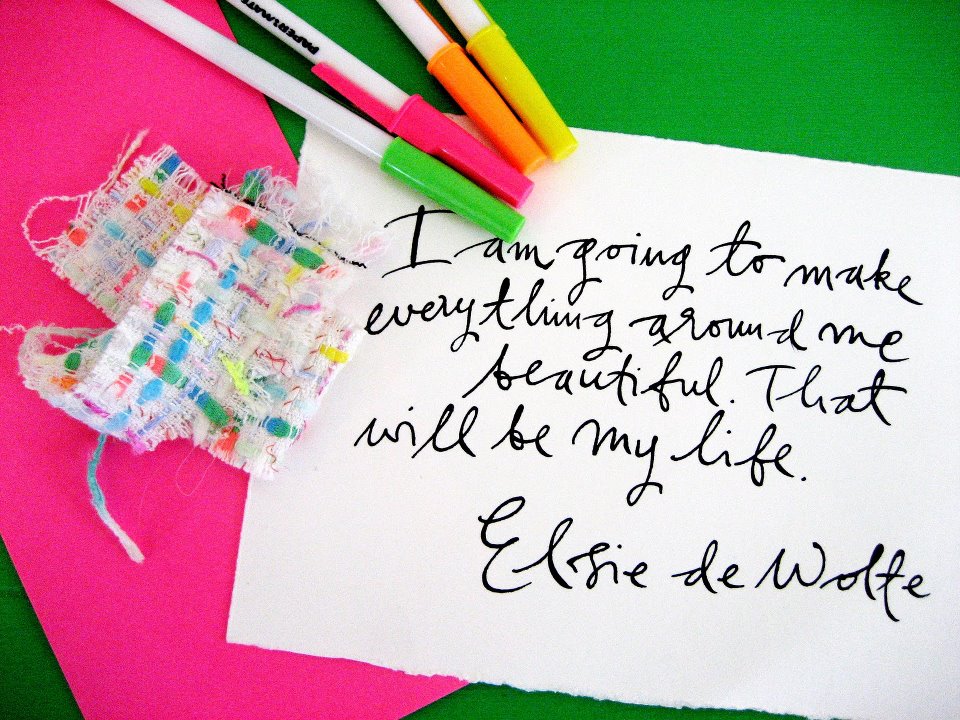 PAPERMATE
I am going to make
everything around me
beautiful. That
will be my life.
Elsie de Wolfe